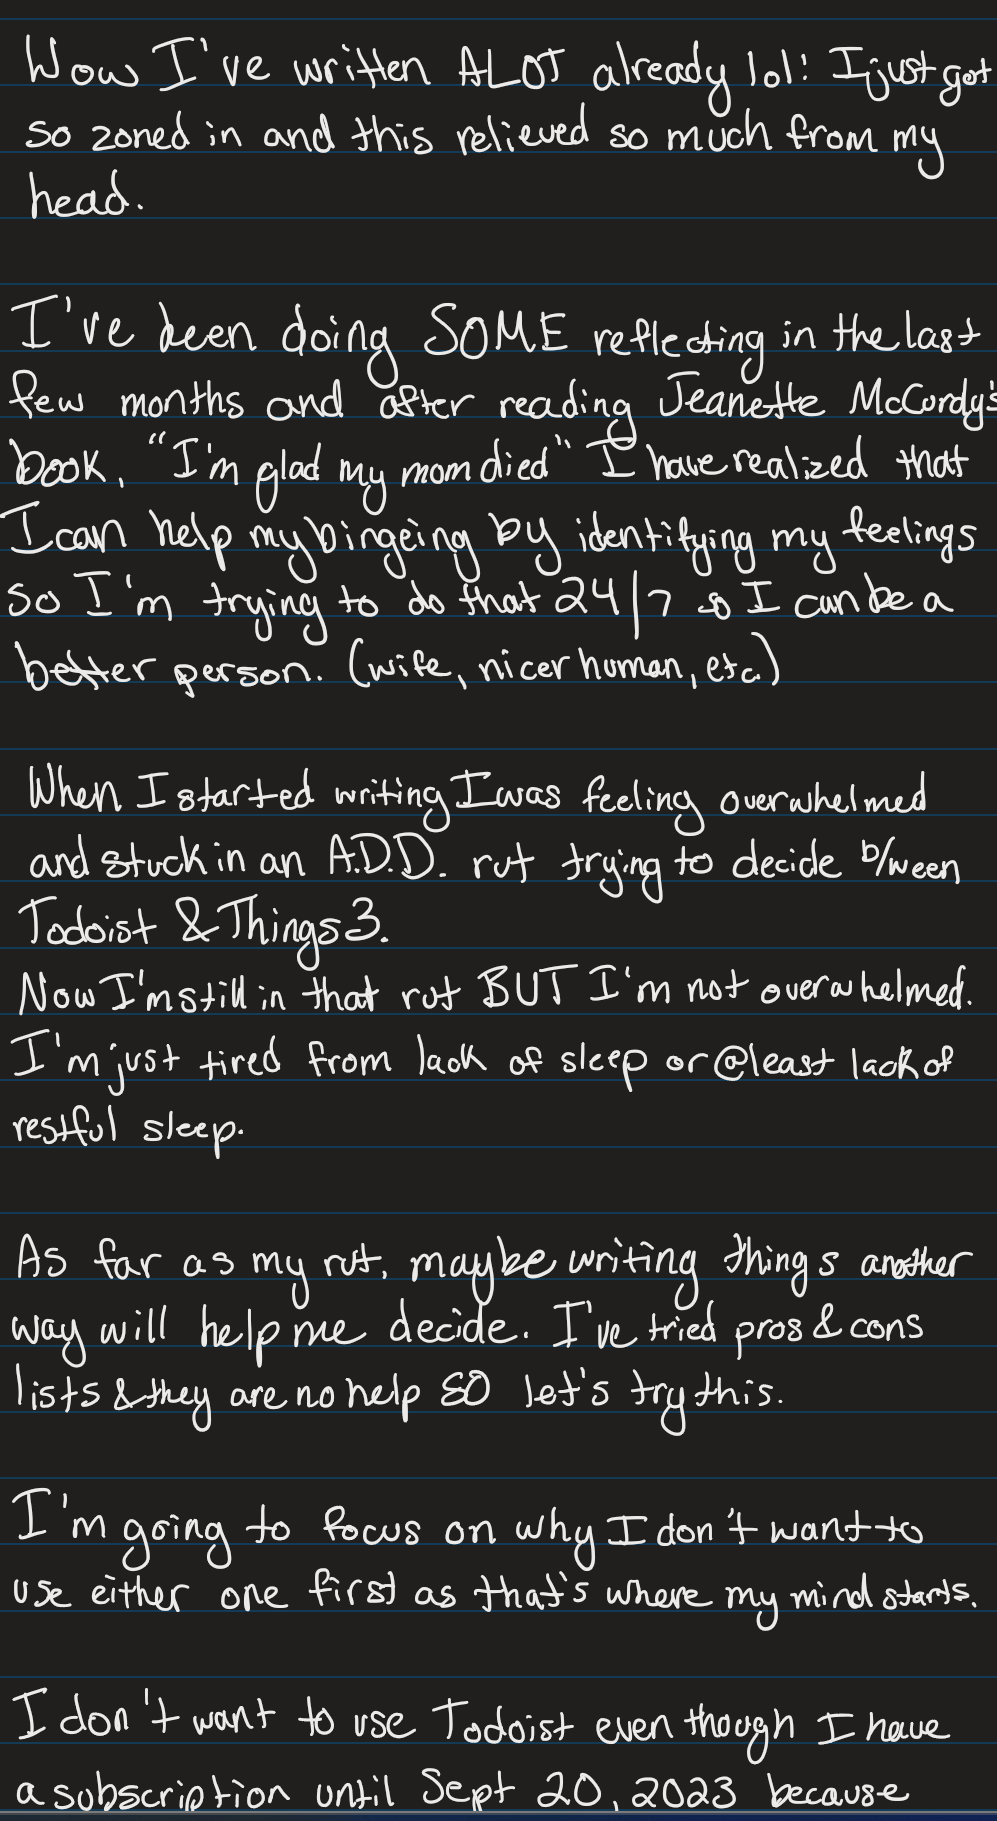 Wow I've written ALOT already lol! I just got
so zoned in and this relieved so much from my
head.
I've been doing SOME reflecting in the last
few months and after reading Jeanette McCurdy's
book, "I'm glad my mom died" I have realized that
I can help my bingeing by identifying my feelings
so I'm trying to do that 24/7 so I can be a
better person. (wife, nicer human, etc.)
When I started writing I was feeling overwhelmed
and stuck in an A.D.D. rut trying to decide b/ween
Todoist & Things 3.
Now I'm still in that rut BUT I'm not overwhelmed.
I'm just tired from lack of sleep or @least lack of
restful sleep.
As far as my rut, maybe writing things another
way will help me decide. I've tried pros & cons
lists & they are no help SO let's try this.
I'm going to focus on why I don't want to
use either one first as that's where my mind starts.
I don't want to use Todoist even though I have
a subscription until Sept 20, 2023 because